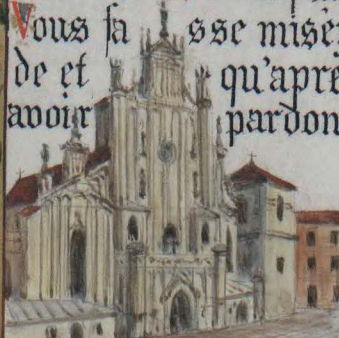 Vous fa sse misé
de et qu'aprè
avoir pardon